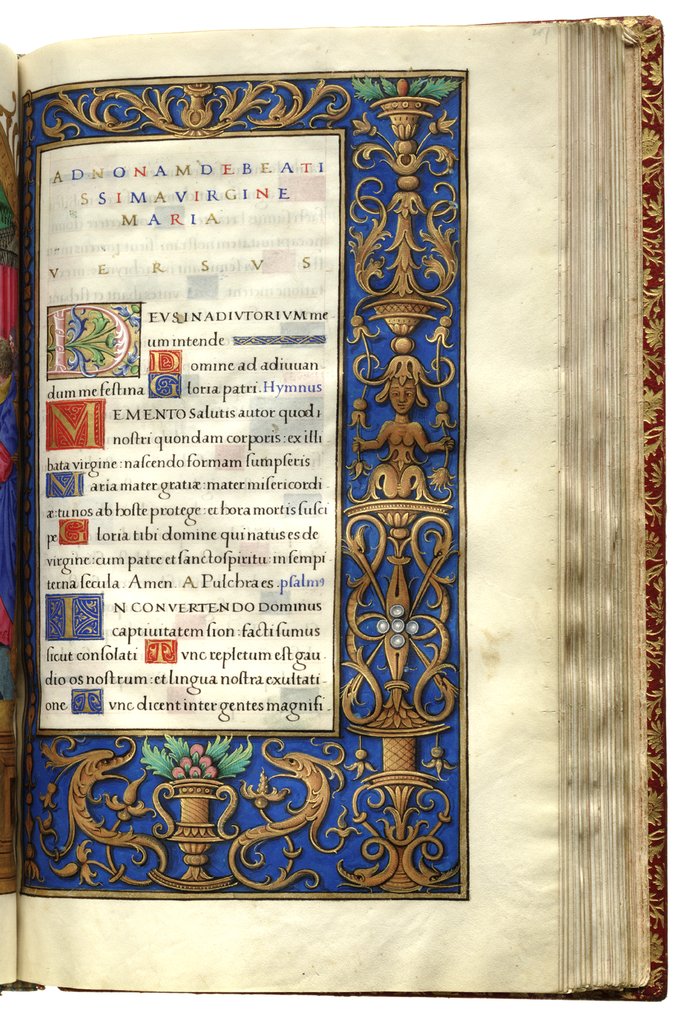 ADNONAMDEBEATI
SSIMAVIRGINE
MARIA
VERSVS
DEVSINADIVTORIVM me
um intende
Domine ad adiuuan
dum me festina Gloria patri. Hymnus
MEMENTO Salutis autor quod
nostri quondam corporis: ex illi
bata virgine: nascendo formam sumpseris
Maria mater gratiæ: mater misericordi
æ: tu nos ab hoste protege: et hora mortis susci
pe Gloria tibi domine qui natus es de
virgine: cum patre et sancto spiritu: in sempi
terna secula. Amen. A Pulchra es. psalmꝰ
IN CONVERTENDO Dominus
captiuitatem sion: facti sumus
sicut consolati Tunc repletum est gau
dio os nostrum: et lingua nostra exultati
one Tunc dicent inter gentes magnifi